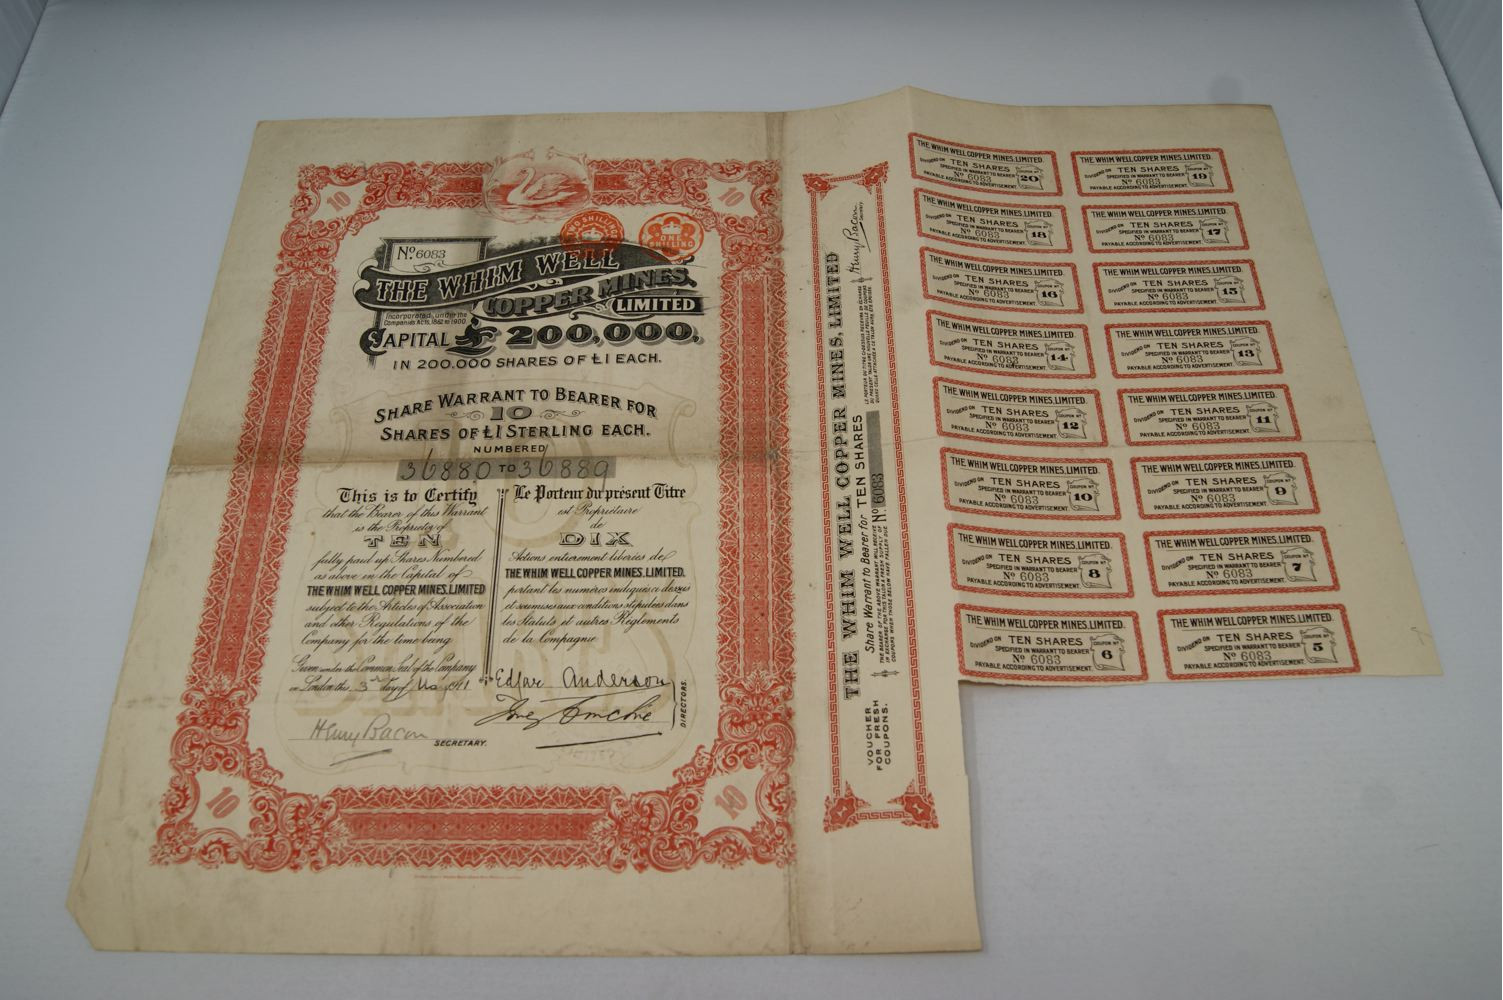 10
10
TWO SHILLINGS
ONE SHILLING
No. 6083
THE WHIM WELL
COPPER MINES,
LIMITED
Incorporated under the
Companies Acts, 1862 to 1900.
CAPITAL £ 200,000,
IN 200.000 SHARES OF £1 EACH.
SHARE WARRANT TO BEARER FOR
10
SHARES OF £1 STERLING EACH.
NUMBERED
36880 TO 36889
This is to Certify
that the Bearer of this Warrant
is the Proprietor of
TEN
fully paid up Shares Numbered
as above in the Capital of
THE WHIM WELL COPPER MINES, LIMITED
subject to the Articles of Association
and other Regulations of the
Company for the time being
Given under the Common Seal of the Company
in London this 3rd day of
Henry Bacon
SECRETARY.
Le Porteur du présent Titre
est Propriétaire
de
DIX
Actions entièrement libérées de
THE WHIM WELL COPPER MINES, LIMITED.
portant les numéros indiqués ci dessus
et soumises aux conditions stipulées dans
les Statuts et autres Règlements
de la Compagnie
Edgar Anderson
DIRECTORS.
10
10
THE WHIM WELL COPPER MINES, LIMITED
Share Warrant to Bearer for TEN SHARES No 6083
THE BEARER OF THE ABOVE WARRANT WILL RECEIVE
IN EXCHANGE FOR THIS TALON A FRESH SUPPLY OF
COUPONS WHEN THOSE BELOW HAVE FALLEN DUE
Henry Bacon
Secretary
VOUCHER
FOR FRESH
COUPONS.
THE WHIM WELL COPPER MINES, LIMITED.
DIVIDEND ON TEN SHARES
SPECIFIED IN WARRANT TO BEARER
No 6083
PAYABLE ACCORDING TO ADVERTISEMENT.
COUPON No
20
THE WHIM WELL COPPER MINES, LIMITED.
DIVIDEND ON TEN SHARES
SPECIFIED IN WARRANT TO BEARER
No 6083
PAYABLE ACCORDING TO ADVERTISEMENT.
COUPON No
19
THE WHIM WELL COPPER MINES, LIMITED.
DIVIDEND ON TEN SHARES
SPECIFIED IN WARRANT TO BEARER
No 6083
PAYABLE ACCORDING TO ADVERTISEMENT.
COUPON No
18
THE WHIM WELL COPPER MINES, LIMITED.
DIVIDEND ON TEN SHARES
SPECIFIED IN WARRANT TO BEARER
No 6083
PAYABLE ACCORDING TO ADVERTISEMENT.
COUPON No
17
THE WHIM WELL COPPER MINES, LIMITED.
DIVIDEND ON TEN SHARES
SPECIFIED IN WARRANT TO BEARER
No 6083
PAYABLE ACCORDING TO ADVERTISEMENT.
COUPON No
16
THE WHIM WELL COPPER MINES, LIMITED.
DIVIDEND ON TEN SHARES
SPECIFIED IN WARRANT TO BEARER
No 6083
PAYABLE ACCORDING TO ADVERTISEMENT.
COUPON No
15
THE WHIM WELL COPPER MINES, LIMITED.
DIVIDEND ON TEN SHARES
SPECIFIED IN WARRANT TO BEARER
No 6083
PAYABLE ACCORDING TO ADVERTISEMENT.
COUPON No
14
THE WHIM WELL COPPER MINES, LIMITED.
DIVIDEND ON TEN SHARES
SPECIFIED IN WARRANT TO BEARER
No 6083
PAYABLE ACCORDING TO ADVERTISEMENT.
COUPON No
13
THE WHIM WELL COPPER MINES, LIMITED.
DIVIDEND ON TEN SHARES
SPECIFIED IN WARRANT TO BEARER
No 6083
PAYABLE ACCORDING TO ADVERTISEMENT.
COUPON No
12
THE WHIM WELL COPPER MINES, LIMITED.
DIVIDEND ON TEN SHARES
SPECIFIED IN WARRANT TO BEARER
No 6083
PAYABLE ACCORDING TO ADVERTISEMENT.
COUPON No
11
THE WHIM WELL COPPER MINES, LIMITED.
DIVIDEND ON TEN SHARES
SPECIFIED IN WARRANT TO BEARER
No 6083
PAYABLE ACCORDING TO ADVERTISEMENT.
COUPON No
10
THE WHIM WELL COPPER MINES, LIMITED.
DIVIDEND ON TEN SHARES
SPECIFIED IN WARRANT TO BEARER
No 6083
PAYABLE ACCORDING TO ADVERTISEMENT.
COUPON No
9
THE WHIM WELL COPPER MINES, LIMITED.
DIVIDEND ON TEN SHARES
SPECIFIED IN WARRANT TO BEARER
No 6083
PAYABLE ACCORDING TO ADVERTISEMENT.
COUPON No
8
THE WHIM WELL COPPER MINES, LIMITED.
DIVIDEND ON TEN SHARES
SPECIFIED IN WARRANT TO BEARER
No 6083
PAYABLE ACCORDING TO ADVERTISEMENT.
COUPON No
7
THE WHIM WELL COPPER MINES, LIMITED.
DIVIDEND ON TEN SHARES
SPECIFIED IN WARRANT TO BEARER
No 6083
PAYABLE ACCORDING TO ADVERTISEMENT.
COUPON No
6
THE WHIM WELL COPPER MINES, LIMITED.
DIVIDEND ON TEN SHARES
SPECIFIED IN WARRANT TO BEARER
No 6083
PAYABLE ACCORDING TO ADVERTISEMENT.
COUPON No
5